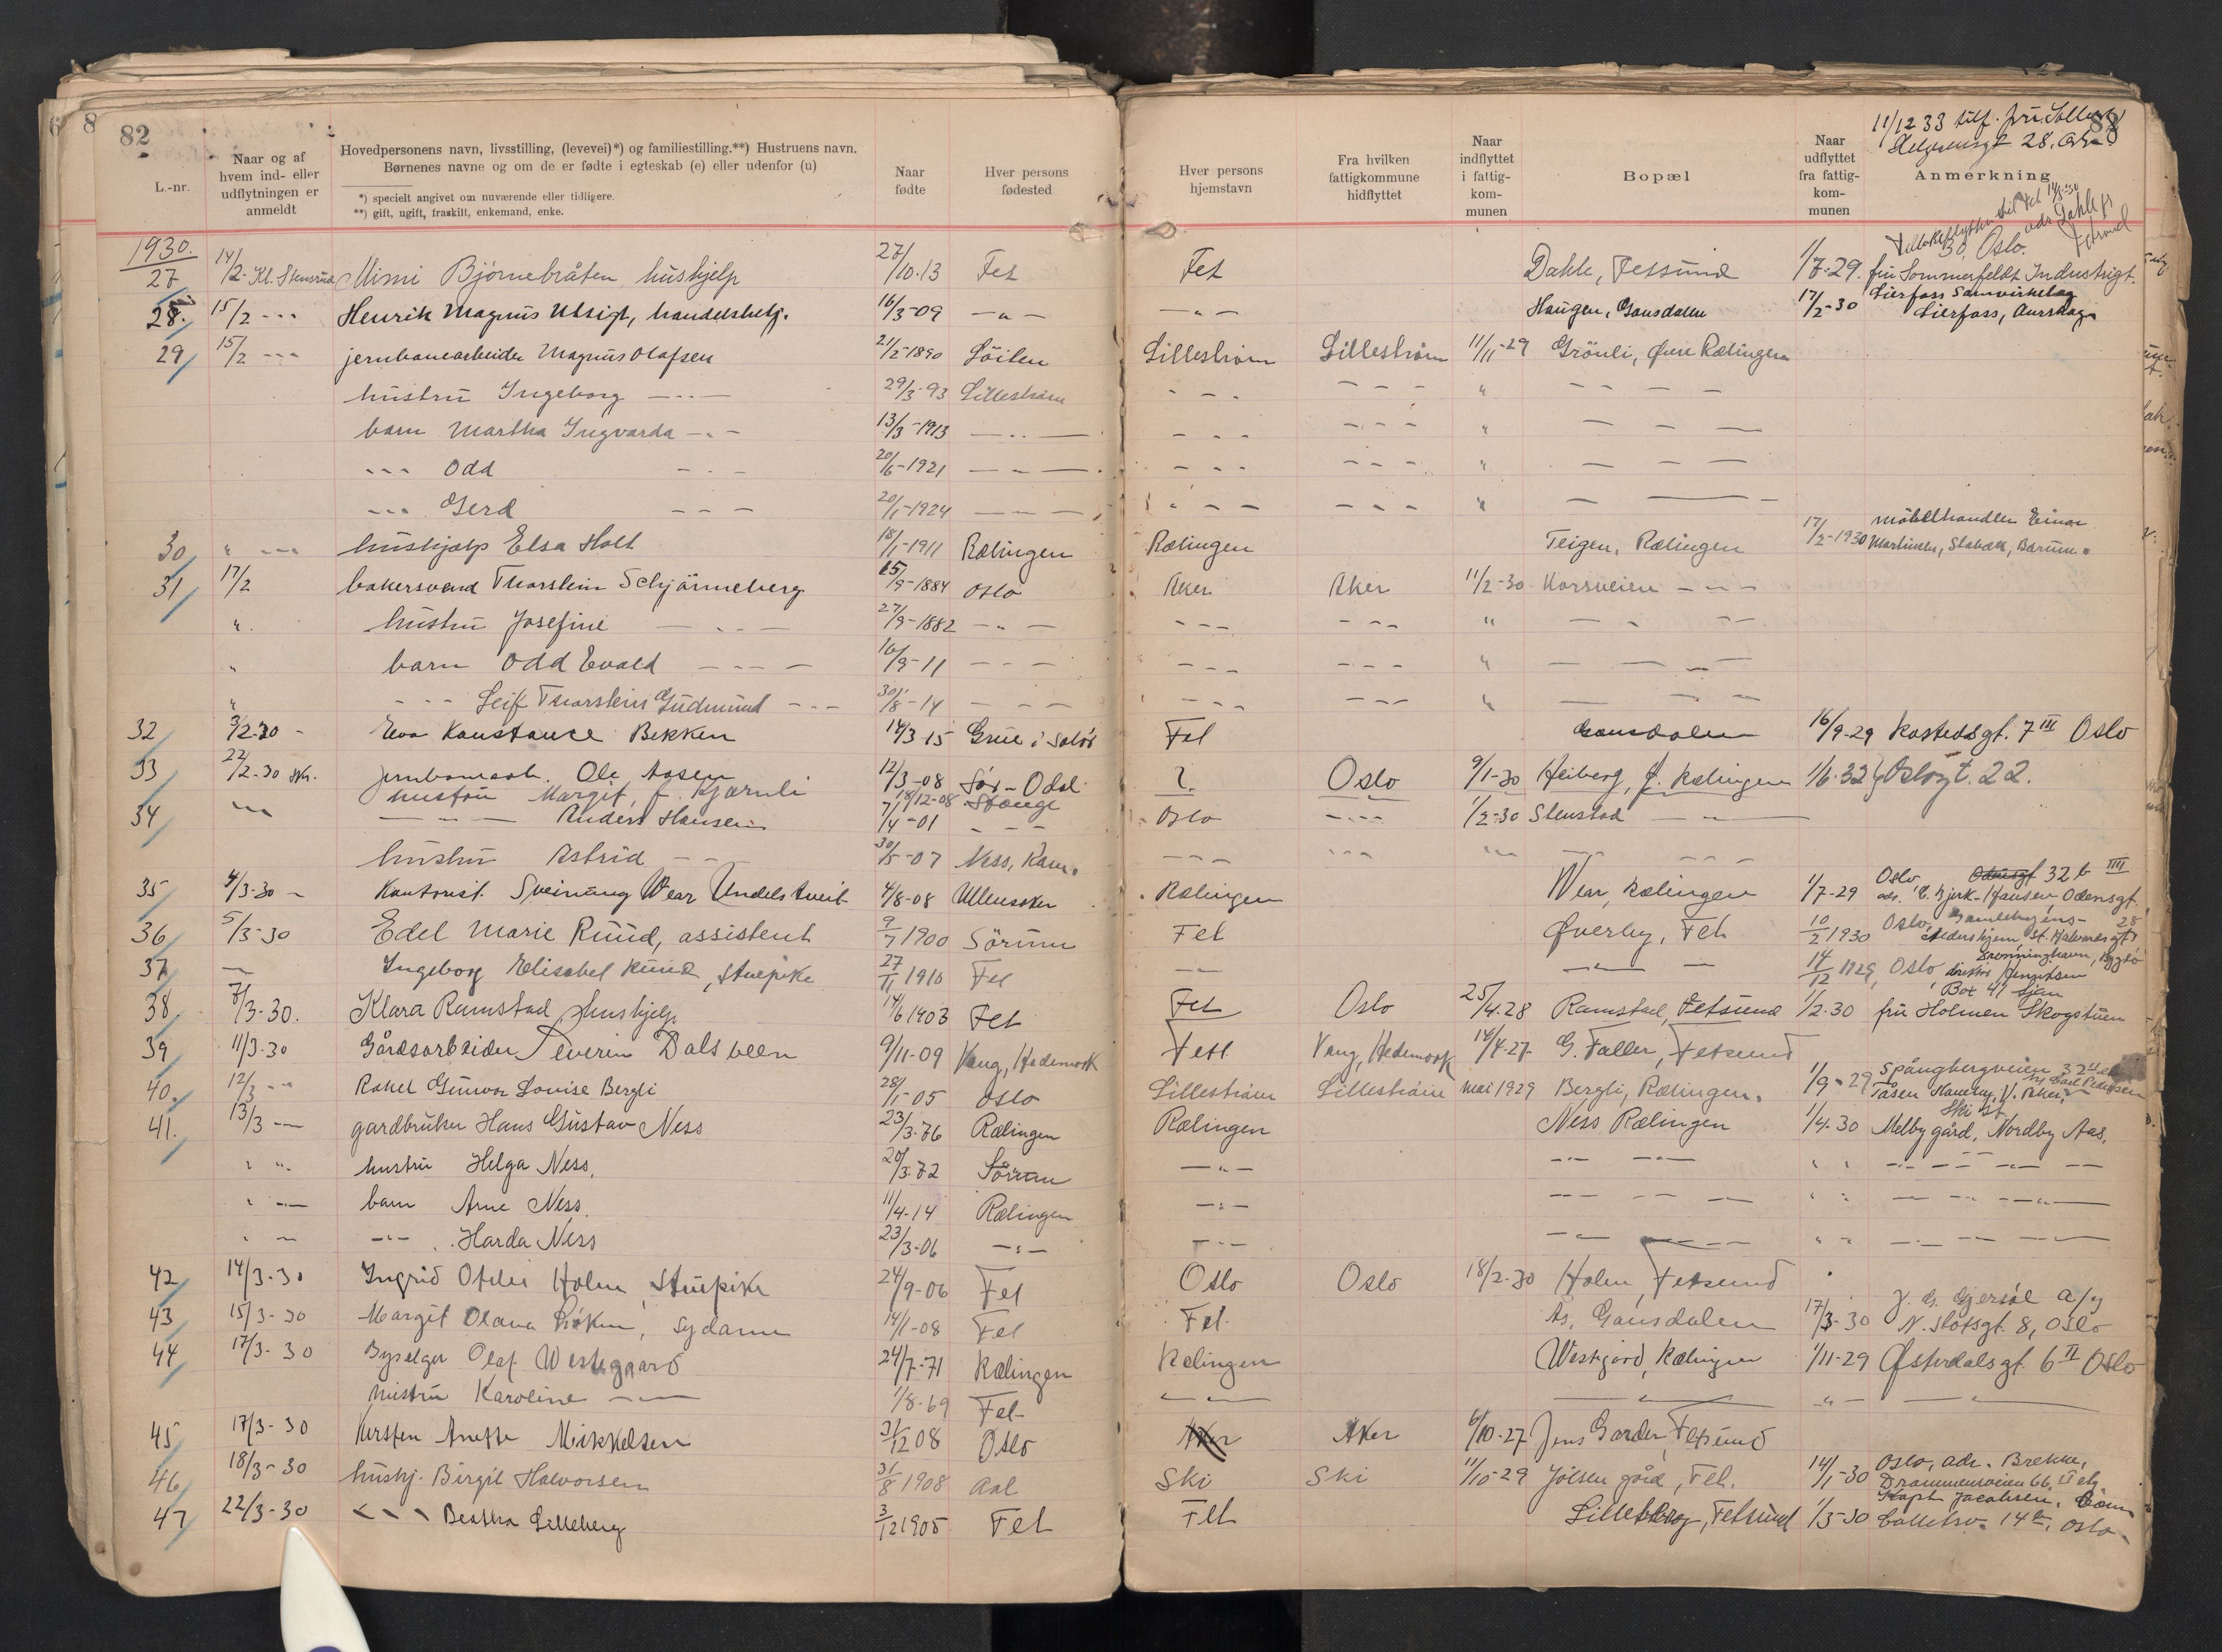 82
L.-nr.
Naar og af hvem ind- eller udflytningen er anmeldt
Hovedpersonens navn, livsstilling, (levevei)*) og familiestilling.**) Hustruens navn.
Børnenes navne og om de er fødte i egteskab (e) eller udenfor (u)
*) specielt angivet om nuværende eller tidligere.
**) gift, ugift, fraskilt, enkemand, enke.
Naar fødte
Hver persons fødested
Hver persons hjemstavn
Fra hvilken fattigkommune hidflyttet
Naar indflyttet i fattig-kom-munen
Bopæl
Naar udflyttet fra fattig-kom-munen
Anmerkning
11/12 33
28
1930.
27 14/2- Kl. Stensrud Mimi Bjørnebråten, hushjelp 27/10-13 Fet Fet Dahle, Fetsund 1/7-29. fru Sommerfeldt Industrigt. 30, Oslo.
28. 15/2 - - - Henrik Magnus Utsigt, handelsbetj. 16/3-09 - " - - " - Haugen, Gansdalen 17/2-30 Lierfoss Samvirkelag Lierfoss, Aurskog
29 15/2 - - - jernbanearbeider Magnus Olafsen 21/2-1890 Löiten Lilleström Lilleström 11/11-29 Grönli, Øvre Rælingen
hustru Ingeborg - - - 29/3-93 Lilleström - - - - - - " - - - -
barn Martha Ingvarda - - - 13/3-1913 - - - - - - - - - " - - - -
- - - Odd - - - 20/6-1921 - - - - - - - - - " - - -
- - - Gerd - - - 20/1-1924 - - - - - - - - - " - - -
30 " - - - hushjælp Elsa Holt 18/1-1911 Rælingen Rælingen Teigen, Rælingen 17/2-1930 Möbelhandler Einar Martinsen, Stabæk, Bærum.
31 17/2 bakersvend Thorstein Schjänneberg 15/9-1884 Oslo Aker Aker 11/2-30 Korsveien - - -
" hustru Josefine - - - 27/9-1882 - " - - - - - - - " - - - -
" barn Odd Evald - - - 16/9-11 - - - - - - - - - " - - - -
" - - - Leif Thorstein Gudmund - - - 30/8-14 - - - - - - - - - " - - -
32 3/2-30 - Eva Konstanse Bekken 14/3 15 Grue i Solör Fet Gansdalen 16/9-29 7 III Oslo
33 22/2-30 Jernbanearb. Ole Aasen 12/3-08 Sör-Odal ? Oslo 9/1-30 Heiberg, Rælingen 1/6-32 Oslogt. 22.
hustru Margit, f. Kjærnli 18/12-08 Stange
34 - - - Anders Hansen 7/4-01 - - - Oslo - - - 1/2-30 Stenstad - " -
hustru Astrid - - 30/5-07 Ness, Rom. - - - - - - - - - - - - -
35 4/3-30 - Kontorist. Sveinung Wear Undelstveit 4/8-08 Ullensaker Rælingen Wear, Rælingen 1/7-29 Oslo 32 b III Hansen, Odensgt.
36 5/3-30 Edel Marie Ruud, assistent 9/7 1900 Sörum Fet Øverby, Fet 10/2 1930 Oslo, Gamlebyens Aldershjem, St. Halvardsgt. 28
37 - Ingeborg Elisabet Ruud, stuepike 27/11 1910 Fet - " - - " - 14/12 1929, Oslo, direktör Dronninghavn, Bygdö
38 7/3-30. Klara Ramstad hushjelp 14/6 1903 Fet Fet Oslo 25/4.28 Ramstad, Fetsund 1/2-30 fru Holmen Skogstuen Box 41 Ljan
39 11/3-30 Gårdsarbeider Severin Dalsveen 9/11-09 Vang, Hedemark Fet Vang, Hedemark 14/4-27- G. Faller, Fetsund
40. 12/3 - " Rakel Gunvor Lovise Bergli 28/1-05 Oslo Lilleström Lilleström mai 1929 Bergli, Rælingen. 1/9-29 Spångbergveien 32 Tåsen Haveby, V. Aker,
41. 13/3 - gardbruker Hans Gustav Ness 23/3-76 Rælingen Rælingen Ness Rælingen 1/4-30 Melby gård, Nordby Aas, Ski st
" " hustru Helga Ness. 20/3-72 Sörum - " - - " - - " - " " - " - - -
" - " barn Arne Ness. 11/4-14 Rælingen - " - - - - - " " - - - -
" - - " - Harda Ness 23/3-06 - " - - " - - " - - - " " - - - -
42 14/3-30 Ingrid Ofelia Holm, Stuepike 24/9-06 Fet Oslo Oslo 18/2-30 Holm, Fetsund
43 15/3-30 Margit Olava Löken, sydame 14/1-08 Fet Fet. As, Gansdalen 17/3-30 A/S N. Slotsgt. 8, Oslo
44 17/3-30 Byselger Olaf Westgaard 24/7-71 Rælingen Rælingen Westgård, Rælingen 1/11-29 Østerdalsgt. 6 II Oslo
hustru Karoline - " - 1/8-69 Fet - - " - - " - - " - - " -
45 17/3-30 Kirsten Anette Mikkelsen 31/12 08 Oslo Aker Aker 6/10-27 Jens Garder, Fetsund
46 18/3-30 hushj. Birgit Halvorsen 31/8 1908 Aal Ski Ski 11/10-29 Jölsen gård, Fet. 14/1-30 Oslo, adr. Brekke, Drammensveien 66,
47 22/3-30 - - - Beatha Lilleberg 3/12 1905 Fet Fet Lilleberg, Fetsund 1/3-30 Kapt. Jacobsen, 14, Oslo